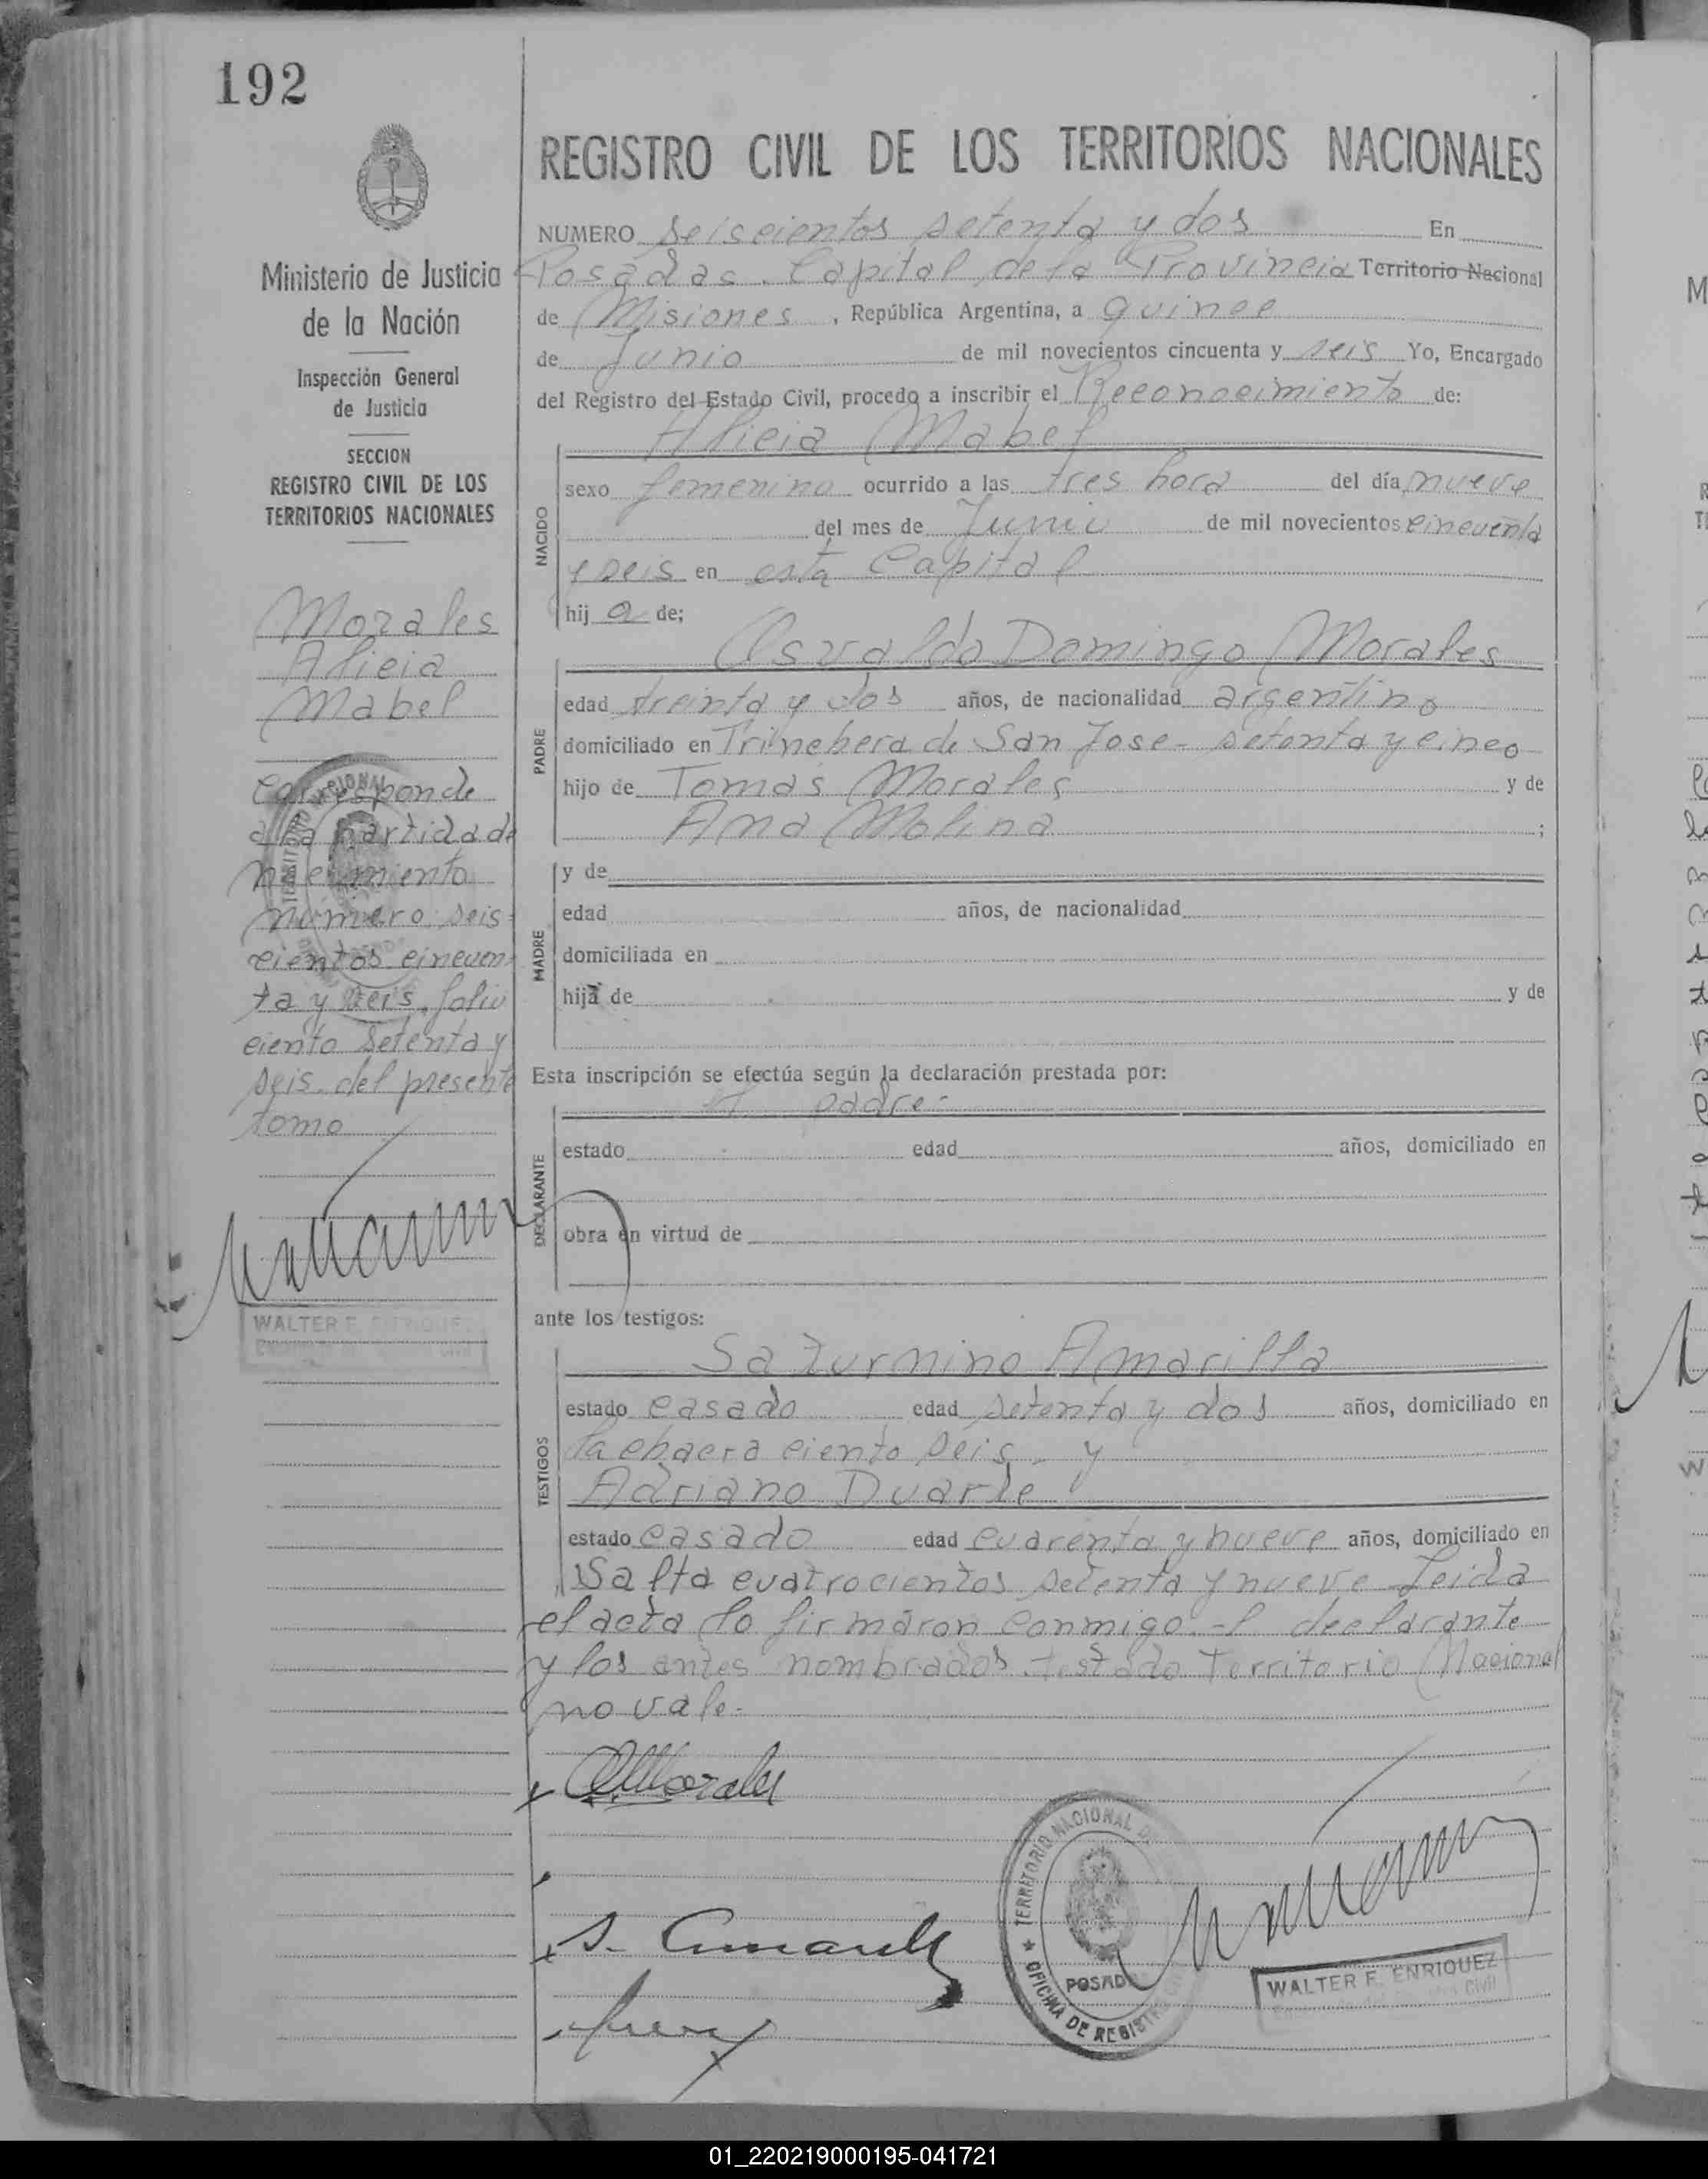 192
REGISTRO CIVIL DE LOS TERRITORIOS NACIONALES
Ministerio de Justicia
de la Nación
Inspección General
de Justicia
SECCION
REGISTRO CIVIL DE LOS
TERRITORIOS NACIONALES
Morales
Alicia
Mabel
Corresponde
a la partida de
nacimiento
número seis
cientos cincuen
ta y seis, folio
ciento setenta y
seis del presente
tomo
WALTER F. ENRIQUEZ
NUMERO seiscientos setenta y dos En
Posadas. Capital de la Provincia Territorio Nacional
de Misiones, República Argentina, a quince
de Junio de mil novecientos cincuenta y seis Yo, Encargado
del Registro del Estado Civil, procedo a inscribir el Reconocimiento de:
Alicia Mabel
NACIDO
sexo femenino ocurrido a las tres hora del día nueve
del mes de Junio de mil novecientos cincuenta
y seis en esta Capital
hij a de;
Osvaldo Domingo Morales
PADRE
edad treinta y dos años, de nacionalidad argentino
domiciliado en Trinchera de San Jose - setenta y cinco
hijo de Tomas Morales y de
Ana Molina ;
MADRE
y de
edad años, de nacionalidad
domiciliada en
hija de y de
Esta inscripción se efectúa según la declaración prestada por:
el padre-
DECLARANTE
estado edad años, domiciliado en
obra en virtud de
ante los testigos:
TESTIGOS
Saturnino Amarilla
estado casado edad setenta y dos años, domiciliado en
la chacra ciento seis. y
Adriano Duarte
estado casado edad cuarenta y nueve años, domiciliado en
Salta cuatrocientos setenta y nueve Leida
el acta la firmaron conmigo el declarante
y los antes nombrados. testado Territorio Nacional
no vale.-
Morales
S. Amarilla
TERRITORIO NACIONAL DE
OFICINA DE REGISTRO
POSADAS
WALTER F. ENRIQUEZ
Civil
01_220219000195-041721